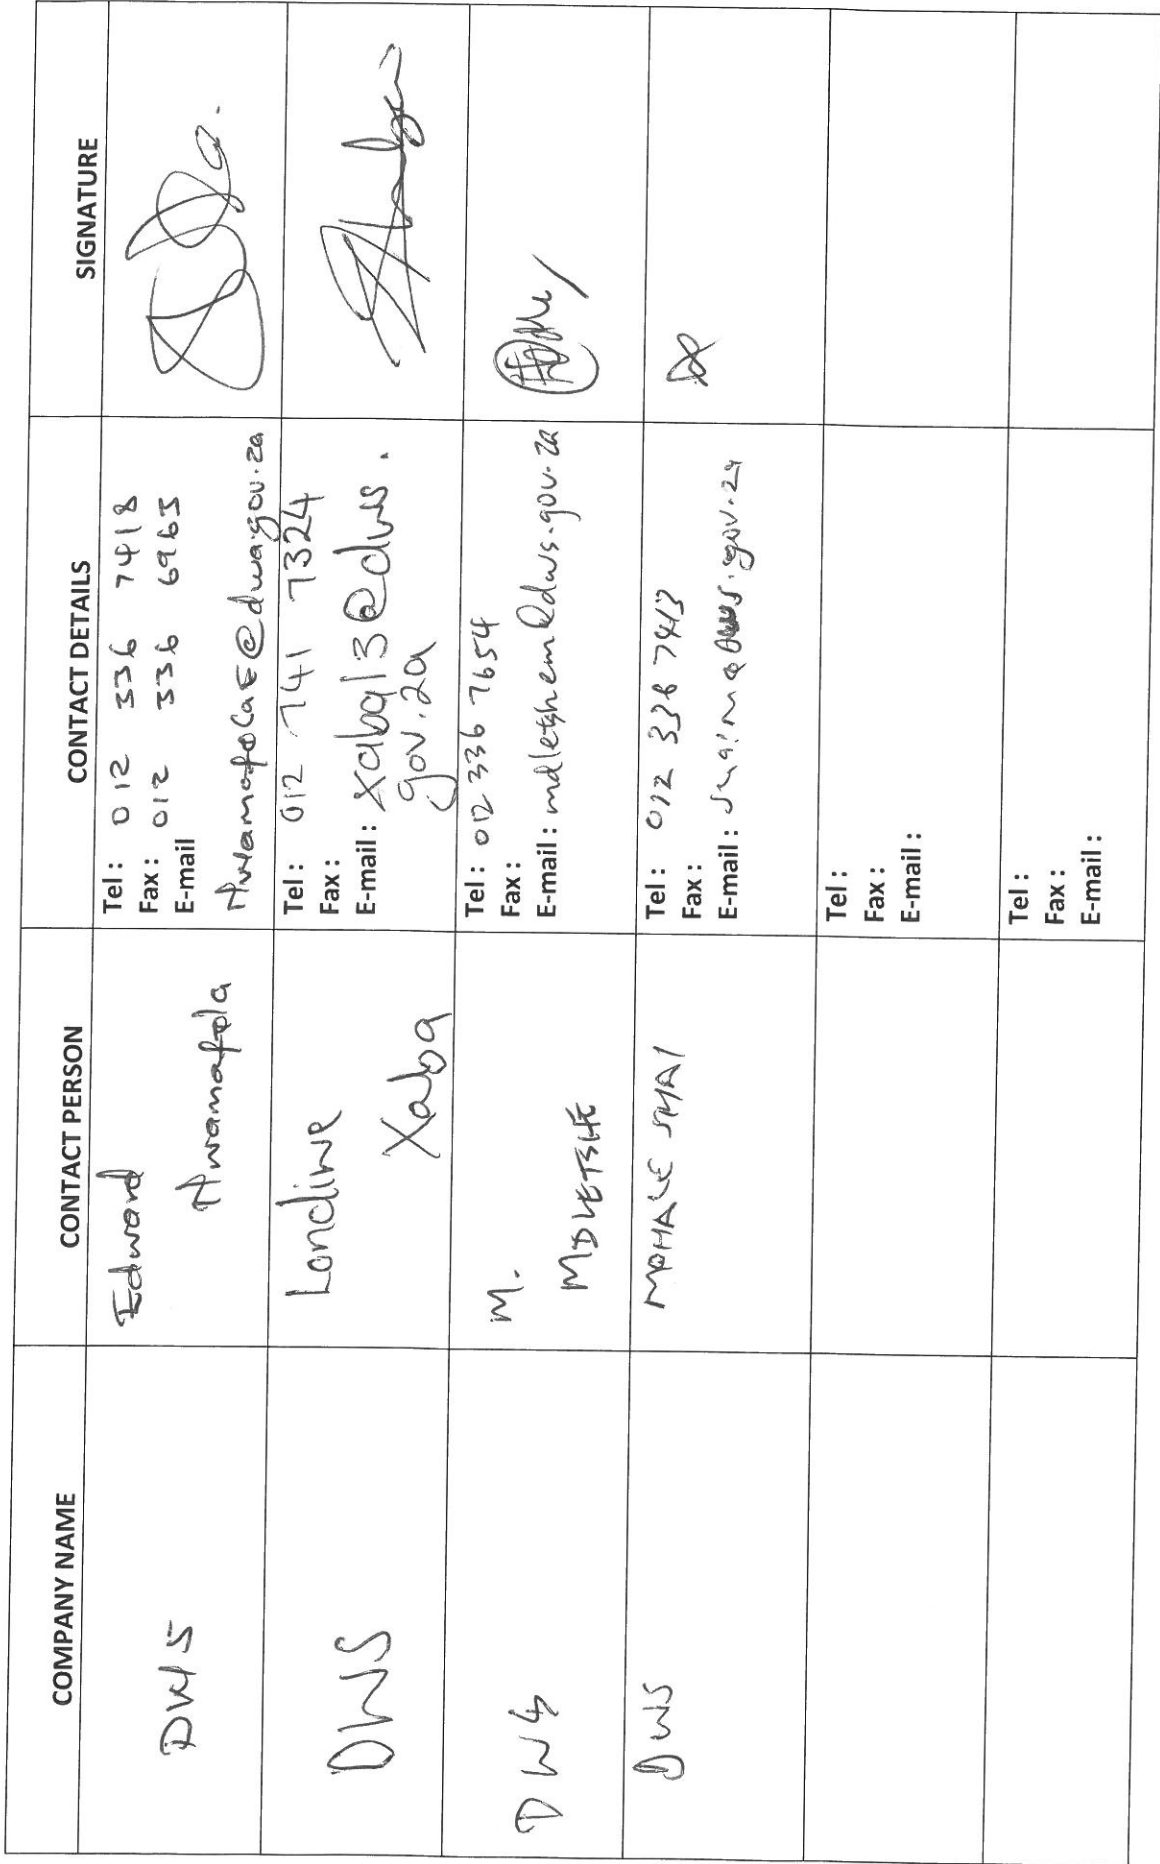 COMPANY NAME CONTACT PERSON CONTACT DETAILS SIGNATURE
DWS
Edward
Nwamafola
Tel : 012 336 7418
Fax : 012 336 6963
E-mail
DWS
Londiwe
Xaba
Tel : 012 741 7324
Fax :
E-mail : xabal3@dws.
gov.za
DWS
M.
MDLETSHE
Tel : 012 336 7654
Fax :
E-mail : mdletshem@dws.gov.za
DWS
MOHALE SMAI
Tel : 012 336 7413
Fax :
E-mail :
Tel :
Fax :
E-mail :
Tel :
Fax :
E-mail :